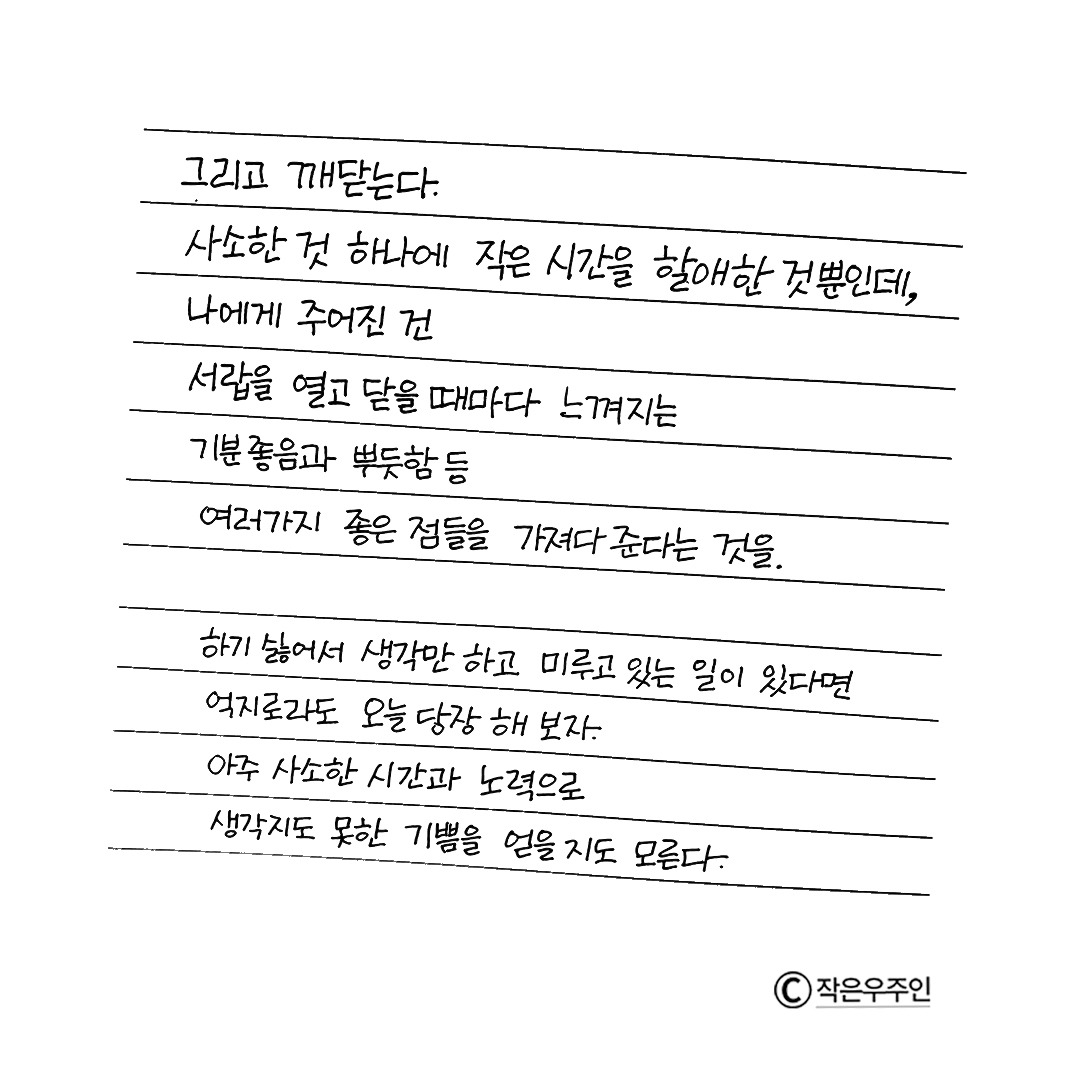 그리고 깨닫는다.
사소한 것 하나에 작은 시간을 할애한 것뿐인데,
나에게 주어진 건
서랍을 열고 닫을 때마다 느껴지는
기분좋음과 뿌듯함 등
여러가지 좋은 점들을 가져다 준다는 것을.
하기 싫어서 생각만 하고 미루고 있는 일이 있다면
억지로라도 오늘 당장 해 보자.
아주 사소한 시간과 노력으로
생각지도 못한 기쁨을 얻을 지도 모른다.
ⓒ작은우주인